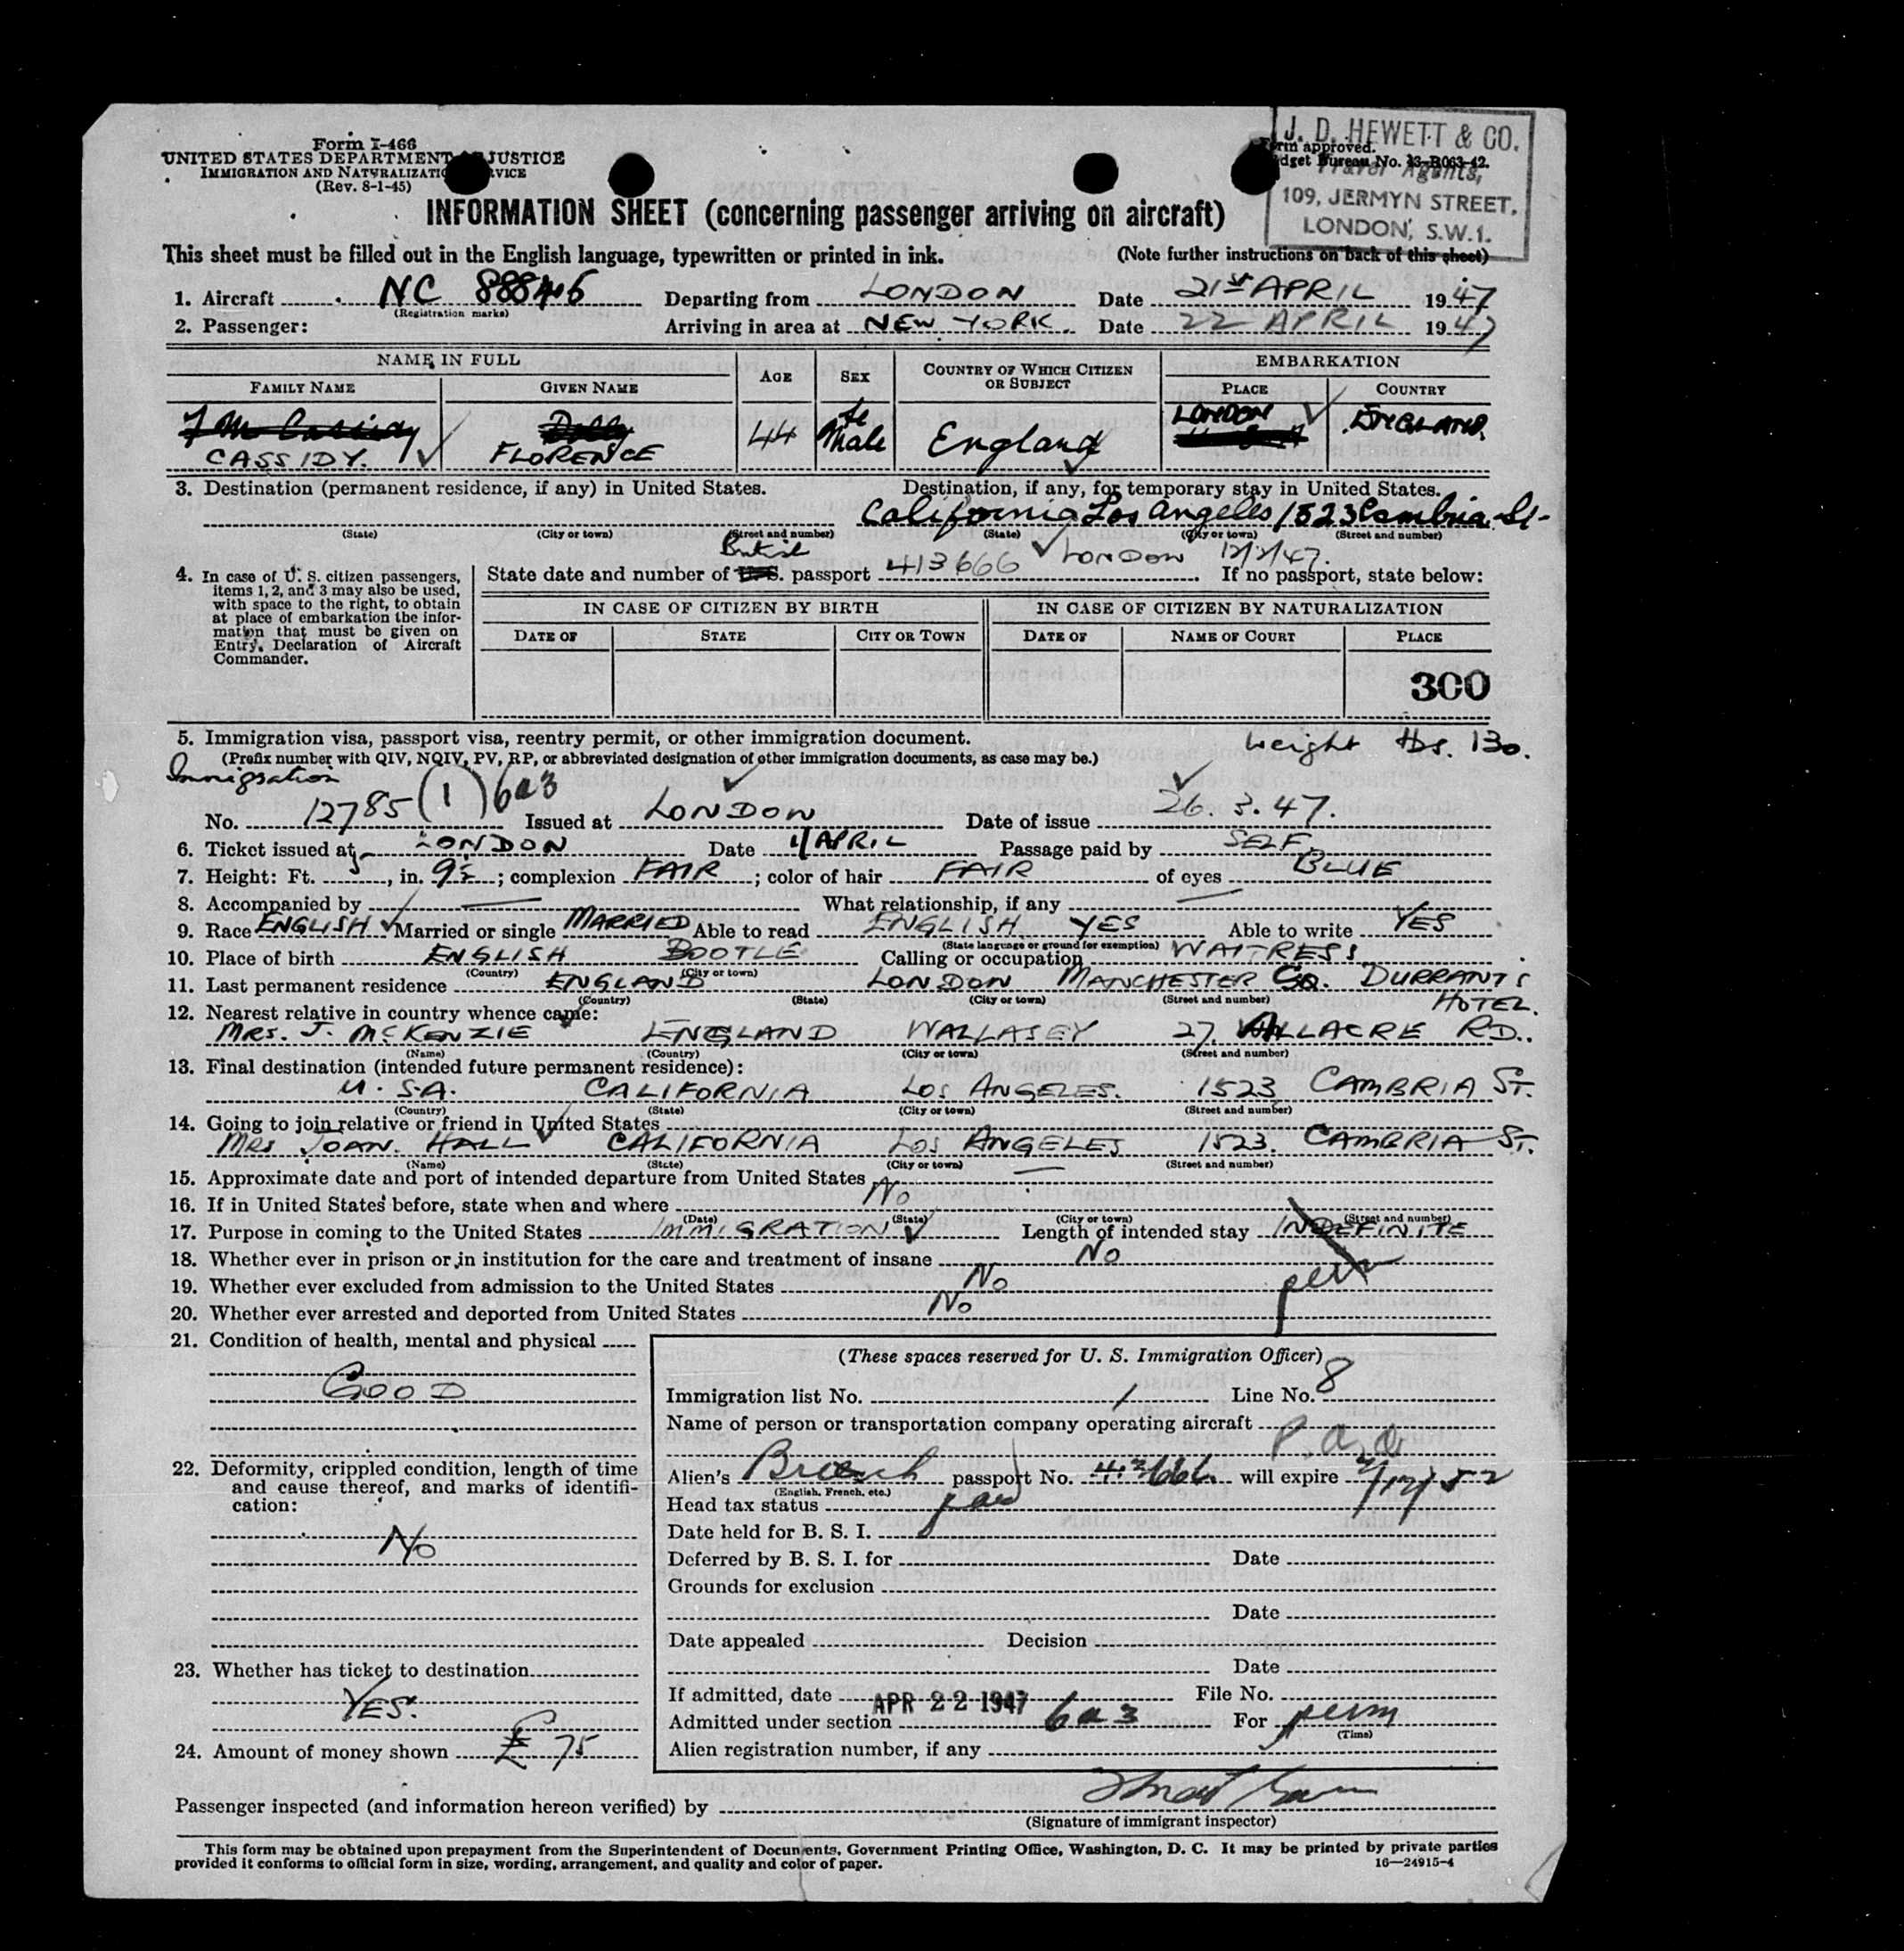 Form I-466
UNITED STATES DEPARTMENT JUSTICE
IMMIGRATION AND NATURALIZATION SERVICE
(Rev. 8-1-45)
J. D. HEWETT & CO.
Form approved.
Budget Bureau No. 43-R063-42.
Travel Agents,
109, JERMYN STREET,
LONDON, S.W.1.
INFORMATION SHEET (concerning passenger arriving on aircraft)
This sheet must be filled out in the English language, typewritten or printed in ink. (Note further instructions on back of this sheet)
1. Aircraft NC 88846 Departing from LONDON Date 21st APRIL 1947
(Registration marks)
2. Passenger: Arriving in area at NEW YORK. Date 22 APRIL 1947
NAME IN FULL AGE SEX COUNTRY OF WHICH CITIZEN OR SUBJECT EMBARKATION
FAMILY NAME GIVEN NAME PLACE COUNTRY
Dolly 44 fe male England LONDON ENGLAND.
CASSIDY. FLORENCE
3. Destination (permanent residence, if any) in United States. Destination, if any, for temporary stay in United States.
California Los Angeles 1523 Cambria St-
(State) (City or town) (Street and number) (State) (City or town) (Street and number)
British LONDON 12/2/47.
4. In case of U. S. citizen passengers, items 1, 2, and 3 may also be used, with space to the right, to obtain at place of embarkation the information that must be given on Entry, Declaration of Aircraft Commander.
State date and number of U.S. passport 413666 If no passport, state below:
IN CASE OF CITIZEN BY BIRTH IN CASE OF CITIZEN BY NATURALIZATION
DATE OF STATE CITY OR TOWN DATE OF NAME OF COURT PLACE
300
5. Immigration visa, passport visa, reentry permit, or other immigration document. Weight lbs. 130.
(Prefix number with QIV, NQIV, PV, RP, or abbreviated designation of other immigration documents, as case may be.)
Immigration
No. 12785 (1) 6a3 Issued at LONDON Date of issue 26. 3. 47.
6. Ticket issued at LONDON Date 11 APRIL Passage paid by SELF.
7. Height: Ft. 5, in. 9½; complexion FAIR; color of hair FAIR of eyes BLUE
8. Accompanied by — What relationship, if any —
9. Race ENGLISH Married or single MARRIED Able to read ENGLISH YES Able to write YES
(State language or ground for exemption)
10. Place of birth ENGLISH BOOTLE Calling or occupation WAITRESS
(Country) (City or town)
11. Last permanent residence ENGLAND LONDON MANCHESTER SQ. DURRANTS HOTEL.
(Country) (State) (City or town) (Street and number)
12. Nearest relative in country whence came:
MRS. J. MCKENZIE ENGLAND WALLASEY 27, ALLACRE RD..
(Name) (Country) (City or town) (Street and number)
13. Final destination (intended future permanent residence):
U. S.A. CALIFORNIA LOS ANGELES. 1523 CAMBRIA ST.
(Country) (State) (City or town) (Street and number)
14. Going to join relative or friend in United States
MRS JOAN. HALL CALIFORNIA LOS ANGELES 1523. CAMBRIA ST.
(Name) (State) (City or town) (Street and number)
15. Approximate date and port of intended departure from United States —
16. If in United States before, state when and where No
(Date) (State) (City or town) (Street and number)
17. Purpose in coming to the United States IMMIGRATION Length of intended stay INDEFINITE
perm
18. Whether ever in prison or in institution for the care and treatment of insane No
19. Whether ever excluded from admission to the United States No
20. Whether ever arrested and deported from United States No
21. Condition of health, mental and physical
GOOD
22. Deformity, crippled condition, length of time and cause thereof, and marks of identification:
No
23. Whether has ticket to destination
YES.
24. Amount of money shown £ 75
(These spaces reserved for U. S. Immigration Officer)
Immigration list No. 1 Line No. 8
Name of person or transportation company operating aircraft P.a.a
Alien's British passport No. 413666 will expire 2/12/52
(English, French, etc.)
Head tax status paid
Date held for B. S. I.
Deferred by B. S. I. for Date
Grounds for exclusion
Date
Date appealed Decision
Date
If admitted, date APR 22 1947 File No.
Admitted under section 6a3 For perm
(Time)
Alien registration number, if any
Passenger inspected (and information hereon verified) by
(Signature of immigrant inspector)
This form may be obtained upon prepayment from the Superintendent of Documents, Government Printing Office, Washington, D. C. It may be printed by private parties
provided it conforms to official form in size, wording, arrangement, and quality and color of paper. 16—24915-4